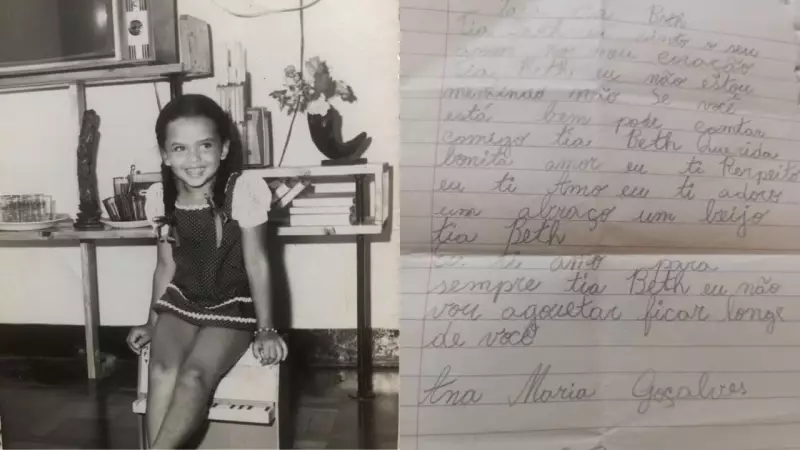 tia Beth
tia Beth eu sinto o seu
amor no meu coração
tia Beth eu não estou
Se você
está bem pode comtar
comigo tia Beth querida
bonita amor eu ti Respeito
eu ti Amo eu ti adoro
um abraço um beijo
tia Beth
eu ti amo para
sempre tia Beth eu não
vou agouetar ficar longe
de você
Ana Maria Goçalves